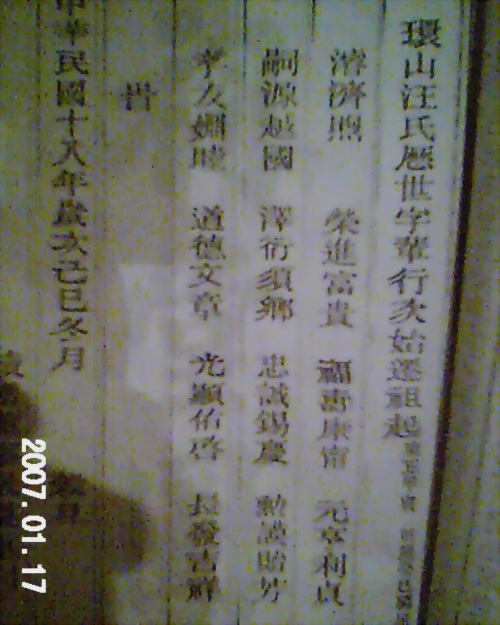 環山汪氏歷世字輩行次始遷祖起
濟 榮進富貴 福壽康甯 元亨利貞
嗣源越國 澤衍須鄉 忠誠錫慶 勳謨貽芳
孝友婣睦 道德文章 光顯佑啓 長發吉祥
中華民國十八年歲次己巳冬月
2007.01.17